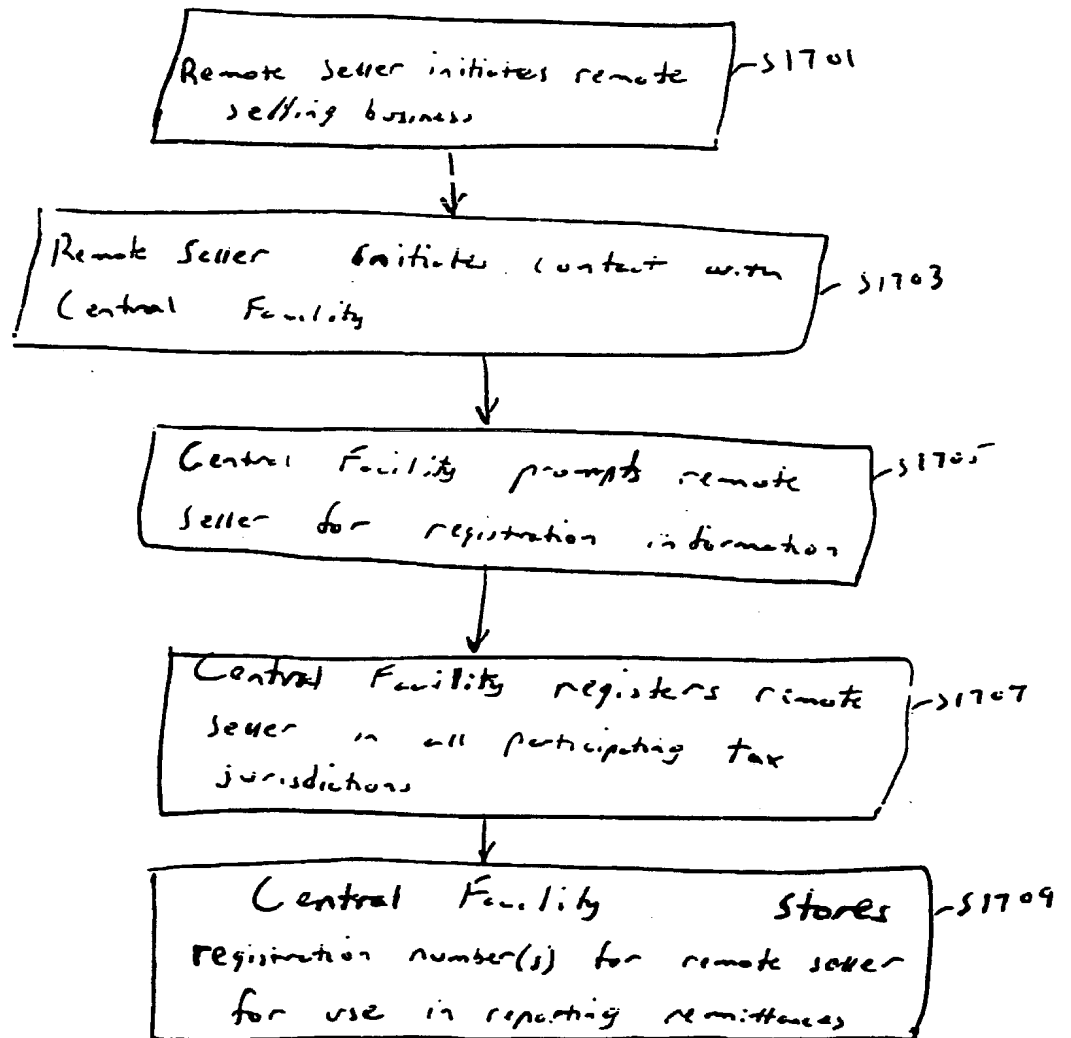 Remote Seller initiates remote
selling business
S1701
Remote Seller initiates contact with
Central Facility
S1703
Central Facility prompts remote
seller for registration information
S1705
Central Facility registers remote
seller in all participating tax
jurisdictions
S1707
Central Facility stores
registration number(s) for remote seller
for use in reporting remittances
S1709